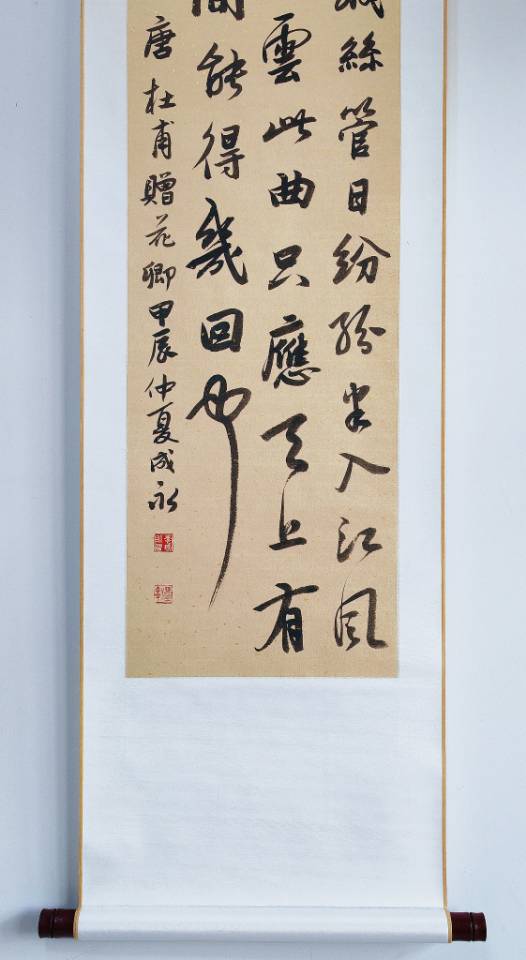 城絲管日紛紛半入江風
雲此曲只應天上有
間能得幾回聞
唐 杜甫 贈花卿 甲辰仲夏成永